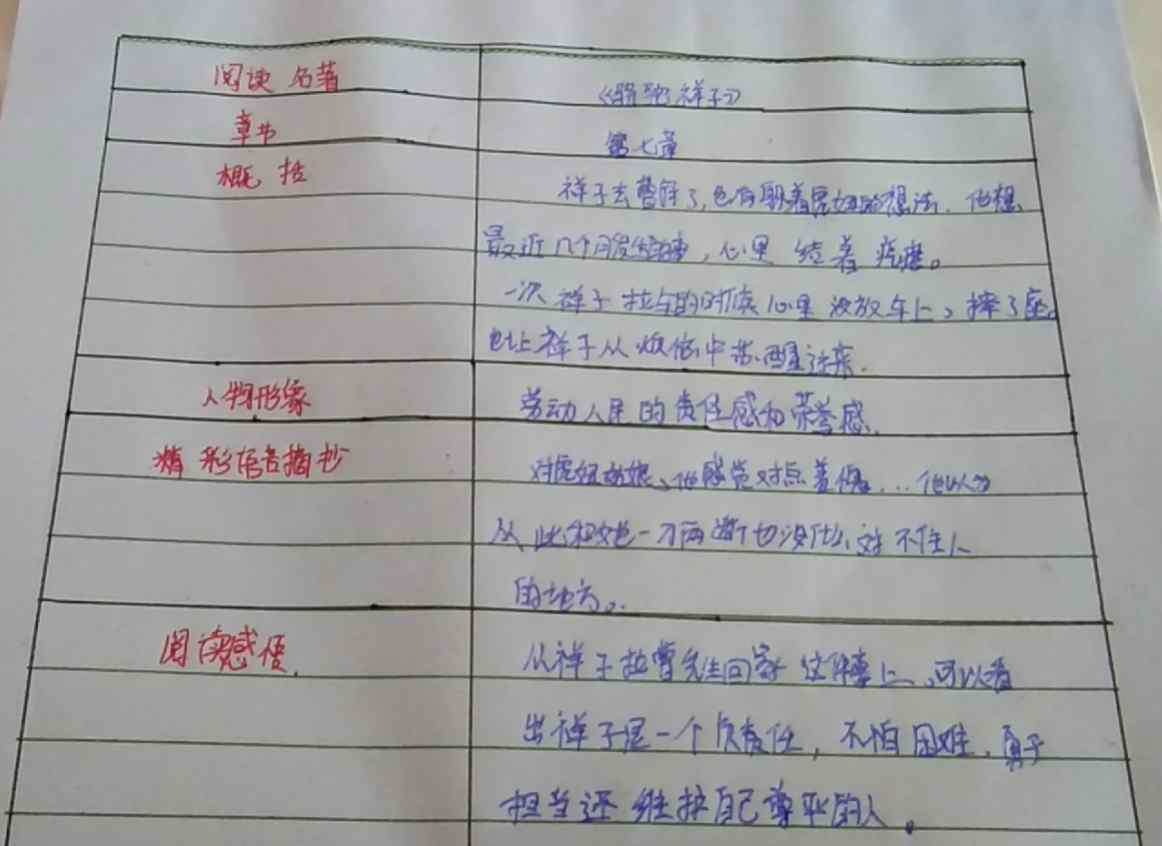 阅读 名著
《骆驼祥子》
章节
第七章
概 括
祥子去曹府了,也有躲着虎妞的想法. 他想
最近几个月发生的事,心里 结着 疙瘩。
一次 祥子 拉车的时候心里 没放车上,摔了座。
也让祥子从 烦恼中苏醒过来.
人物形象
劳动人民的责任感和荣誉感.
精 彩语言摘抄
对虎妞姑娘、他感觉对点羞愧....他以为
从 此和她一刀两断也没什么 对 不住人
的地方。
阅读感悟.
从祥子拉曹先生回家 这件事上,可以看
出祥子是一个负责任,不怕困难、勇于
担当还 维护自己尊严的人。